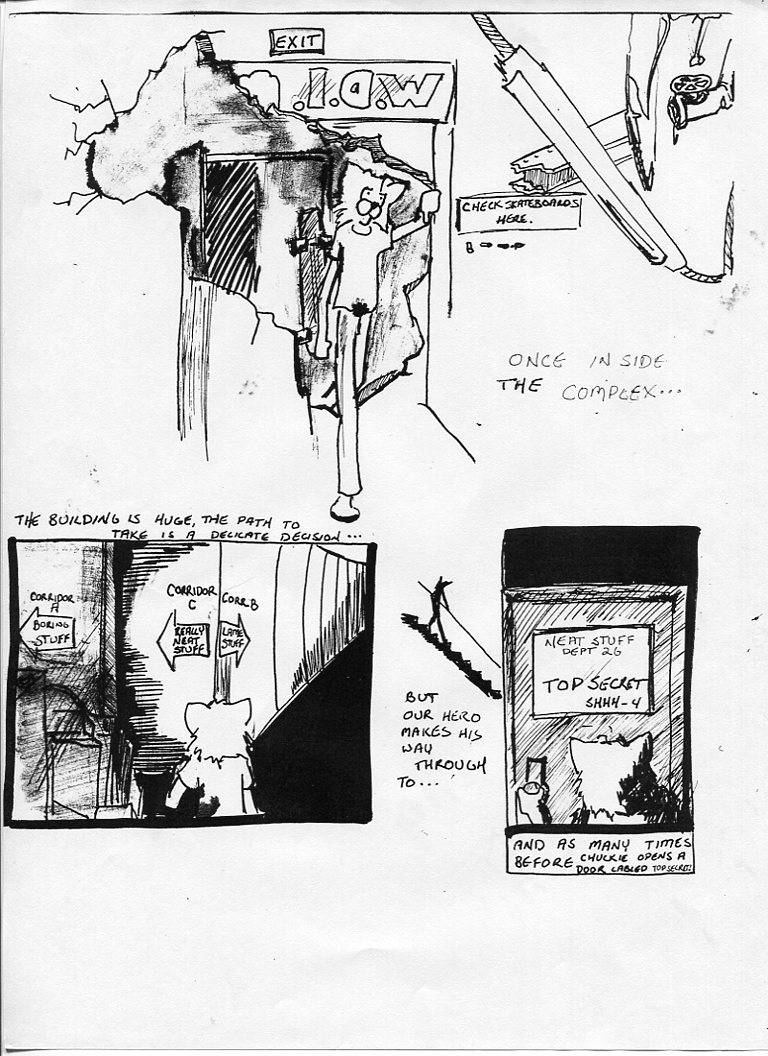 EXIT
W.D.I.
CHECK SKATEBOARDS
HERE.
ONCE INSIDE
THE COMPLEX...
THE BUILDING IS HUGE, THE PATH TO
TAKE IS A DELICATE DECISION...
CORRIDOR
A
BORING
STUFF
CORRIDOR
C
REALLY
NEAT
STUFF
CORR B
LAME
STUFF
BUT
OUR HERO
MAKES HIS
WAY
THROUGH
TO...
NEAT STUFF
DEPT 26
TOP SECRET
SHHH-4
AND AS MANY TIMES
BEFORE CHUCKIE OPENS A
DOOR LABLED TOP SECRET!